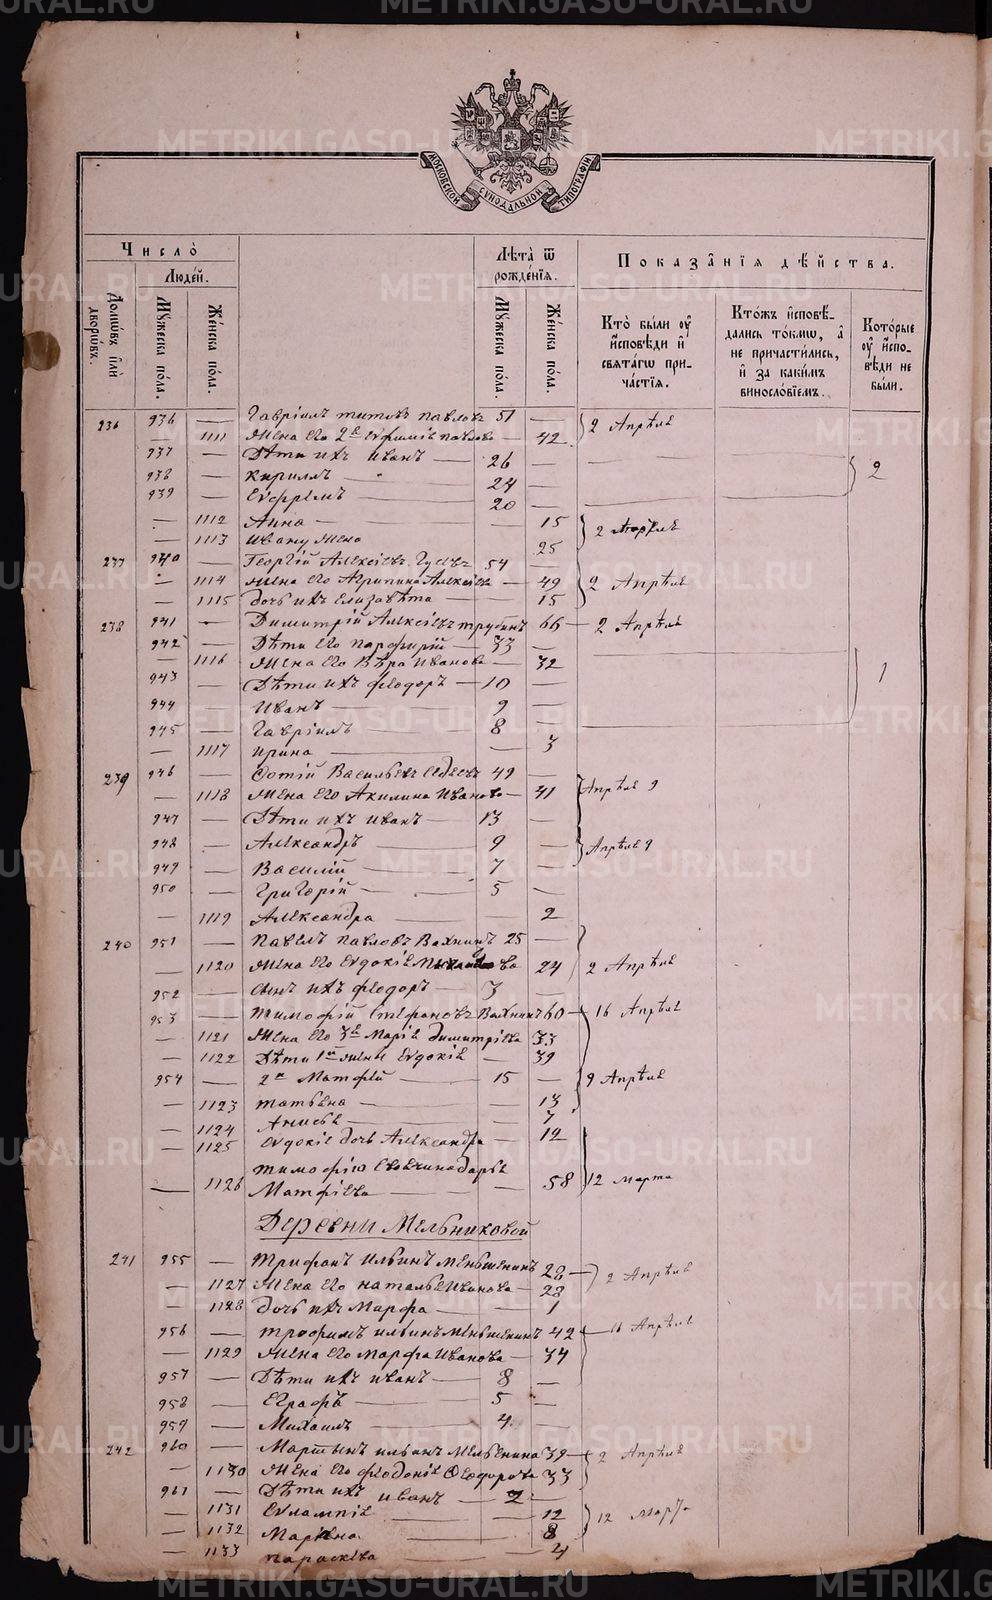 МОСКОВСКОЙ СѴНОДАЛЬНОЙ ТИПОГРАФІИ
Число̀ Лѣта̀ ѿ рожде́нїя. Показа̂нїя дѣ́йства.
Люде́й.
Домѡ́въ и҆лѝ дворѡ́въ. Мꙋ́жеска по́ла. Же́нска по́ла. Мꙋ́жеска по́ла. Же́нска по́ла. Кто̀ бы́ли оу҆ и҆сповѣди и҆ свѧта́гѡ при-ча́стїѧ. Кто́жъ и҆сповѣ́-дались то́кмѡ, а҆ не причасти́лись, и҆ за каки́мъ винослові́емъ. Кото́рые оу҆ и҆спо-вѣди не бы́ли.
236 936 — Гавріилъ Титовъ Павловъ 51 — 2 Апрѣля
— 1111 Жена его 2я Евфимія Павлова — 42
937 — Дѣти ихъ Иванъ — 26 — 2
938 — Кириллъ 24 —
939 — Евфремъ 20 —
— 1112 Анна — 15 2 Апрѣля
— 1113 Ивану жена 25
237 940 — Георгій Алексіевъ Гусевъ 54 —
— 1114 Жена его Агрипина Алексіева — 49 2 Апрѣля
— 1115 Дочь ихъ Елизавѣта — 15
238 941 — Димитрій Алексіевъ Трубинъ 66 — 2 Апрѣля
942 — Дѣти его Порфирій — 33 —
— 1116 Жена его Вѣра Иванова — 32 1
943 — Дѣти ихъ Ѳеодоръ — 10 —
944 — Иванъ — 9 —
945 — Гавріилъ 8 —
— 1117 Ирина — 3
239 946 — Фотій Васильевъ 49 —
— 1118 Жена его Акилина Иванова — 41 Апрѣля 9
947 — Дѣти ихъ Иванъ — 13 —
948 — Александръ 9 — Апрѣля 9
949 — Василій — 7 —
950 — Григорій — 5 —
— 1119 Александра — 2
240 951 — Павелъ Павловъ Вахнинъ 25 —
— 1120 Жена его Евдокія 24 2 Апрѣля
952 — Сынъ ихъ Ѳеодоръ — 3 —
953 — Тимофій Стефановъ Вахнинъ 60 — 16 Апрѣля
— 1121 Жена его 3я Марія Димитріева 33
— 1122 Дѣти 1й жены Евдокія — 39
954 — 2й Матфій — 15 — 9 Апрѣля
— 1123 Татьяна — 13
— 1124 Анисья — 7
— 1125 Евдокіе дочь Александра — 12
Тимофію Дарья
— 1126 Матфіева — 58 12 Марта
Деревни Мельниковой
241 955 — Трифонъ Ильинъ Меньшенинъ 28 — 2 Апрѣля
— 1127 Жена его Наталья Иванова — 28
— 1128 Дочь ихъ Марфа — 1
956 — Трофимъ Ильинъ Меньшенинъ 42 — 16 Апрѣля
— 1129 Жена его Марфа Иванова — 34
957 — Дѣти ихъ Иванъ — 8 —
958 — Еграфъ — 5 —
959 — Михаилъ 4 —
242 960 — Мартынъ Ильинъ 39 — 2 Апрѣля
— 1130 Жена его Ѳеодонія Ѳеодорова 33
961 — Дѣти ихъ Иванъ — 2 —
— 1131 Евлампія 12 12 Марта
— 1132 Маріяна 8
— 1133 Параскева — 4
METRIKI.GASO-URAL.RU